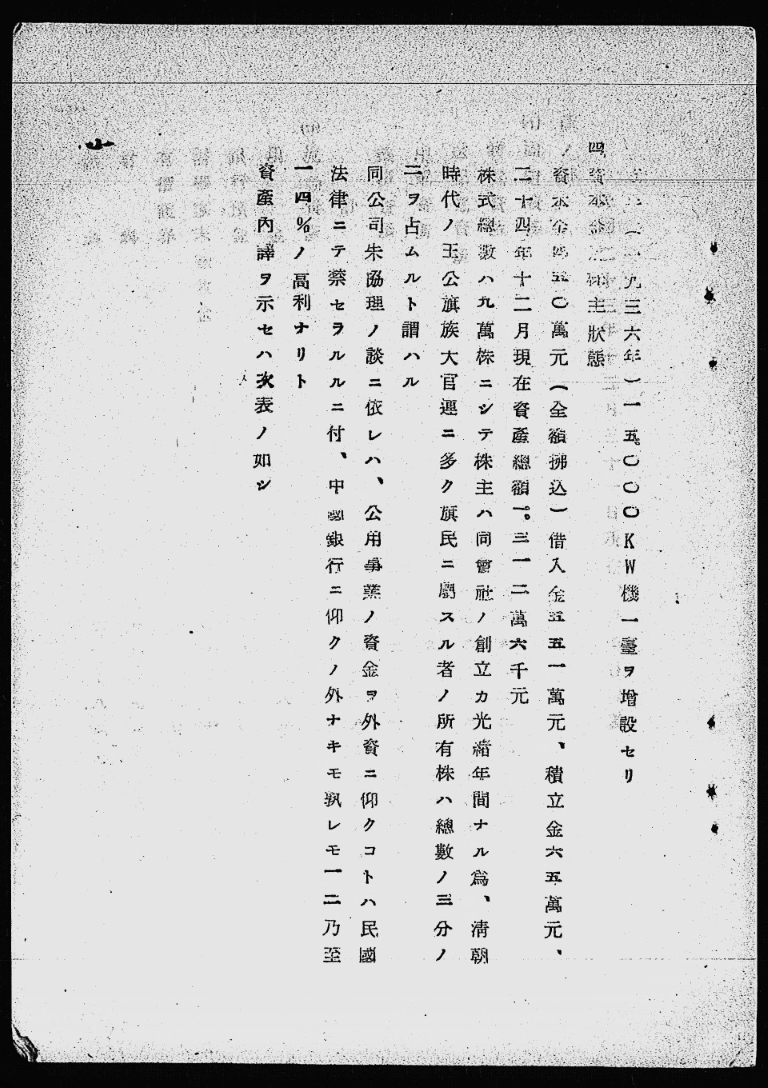 年(一九三六年)一五。〇〇〇KW機一臺ヲ增設セリ
四資本金及株主狀態
資本金四五〇萬元(全額拂込)借入金五五一萬元、積立金六五萬元、
二十四年十二月現在資產總額一。三一二萬六千元
株式總數ハ九萬株ニシテ株主ハ同會社ノ創立カ光緒年間ナル爲、淸朝
時代ノ王公旗族大官連ニ多ク旗民ニ屬スル者ノ所有株ハ總數ノ三分ノ
二ヲ占ムルト謂ハル
同公司朱協理ノ談ニ依レハ、公用事業ノ資金ヲ外資ニ仰クコトハ民國
法律ニテ禁セラルルニ付、中國銀行ニ仰クノ外ナキモ孰レモ一二乃至
一四%ノ高利ナリト
資產內譯ヲ示セハ次表ノ如シ